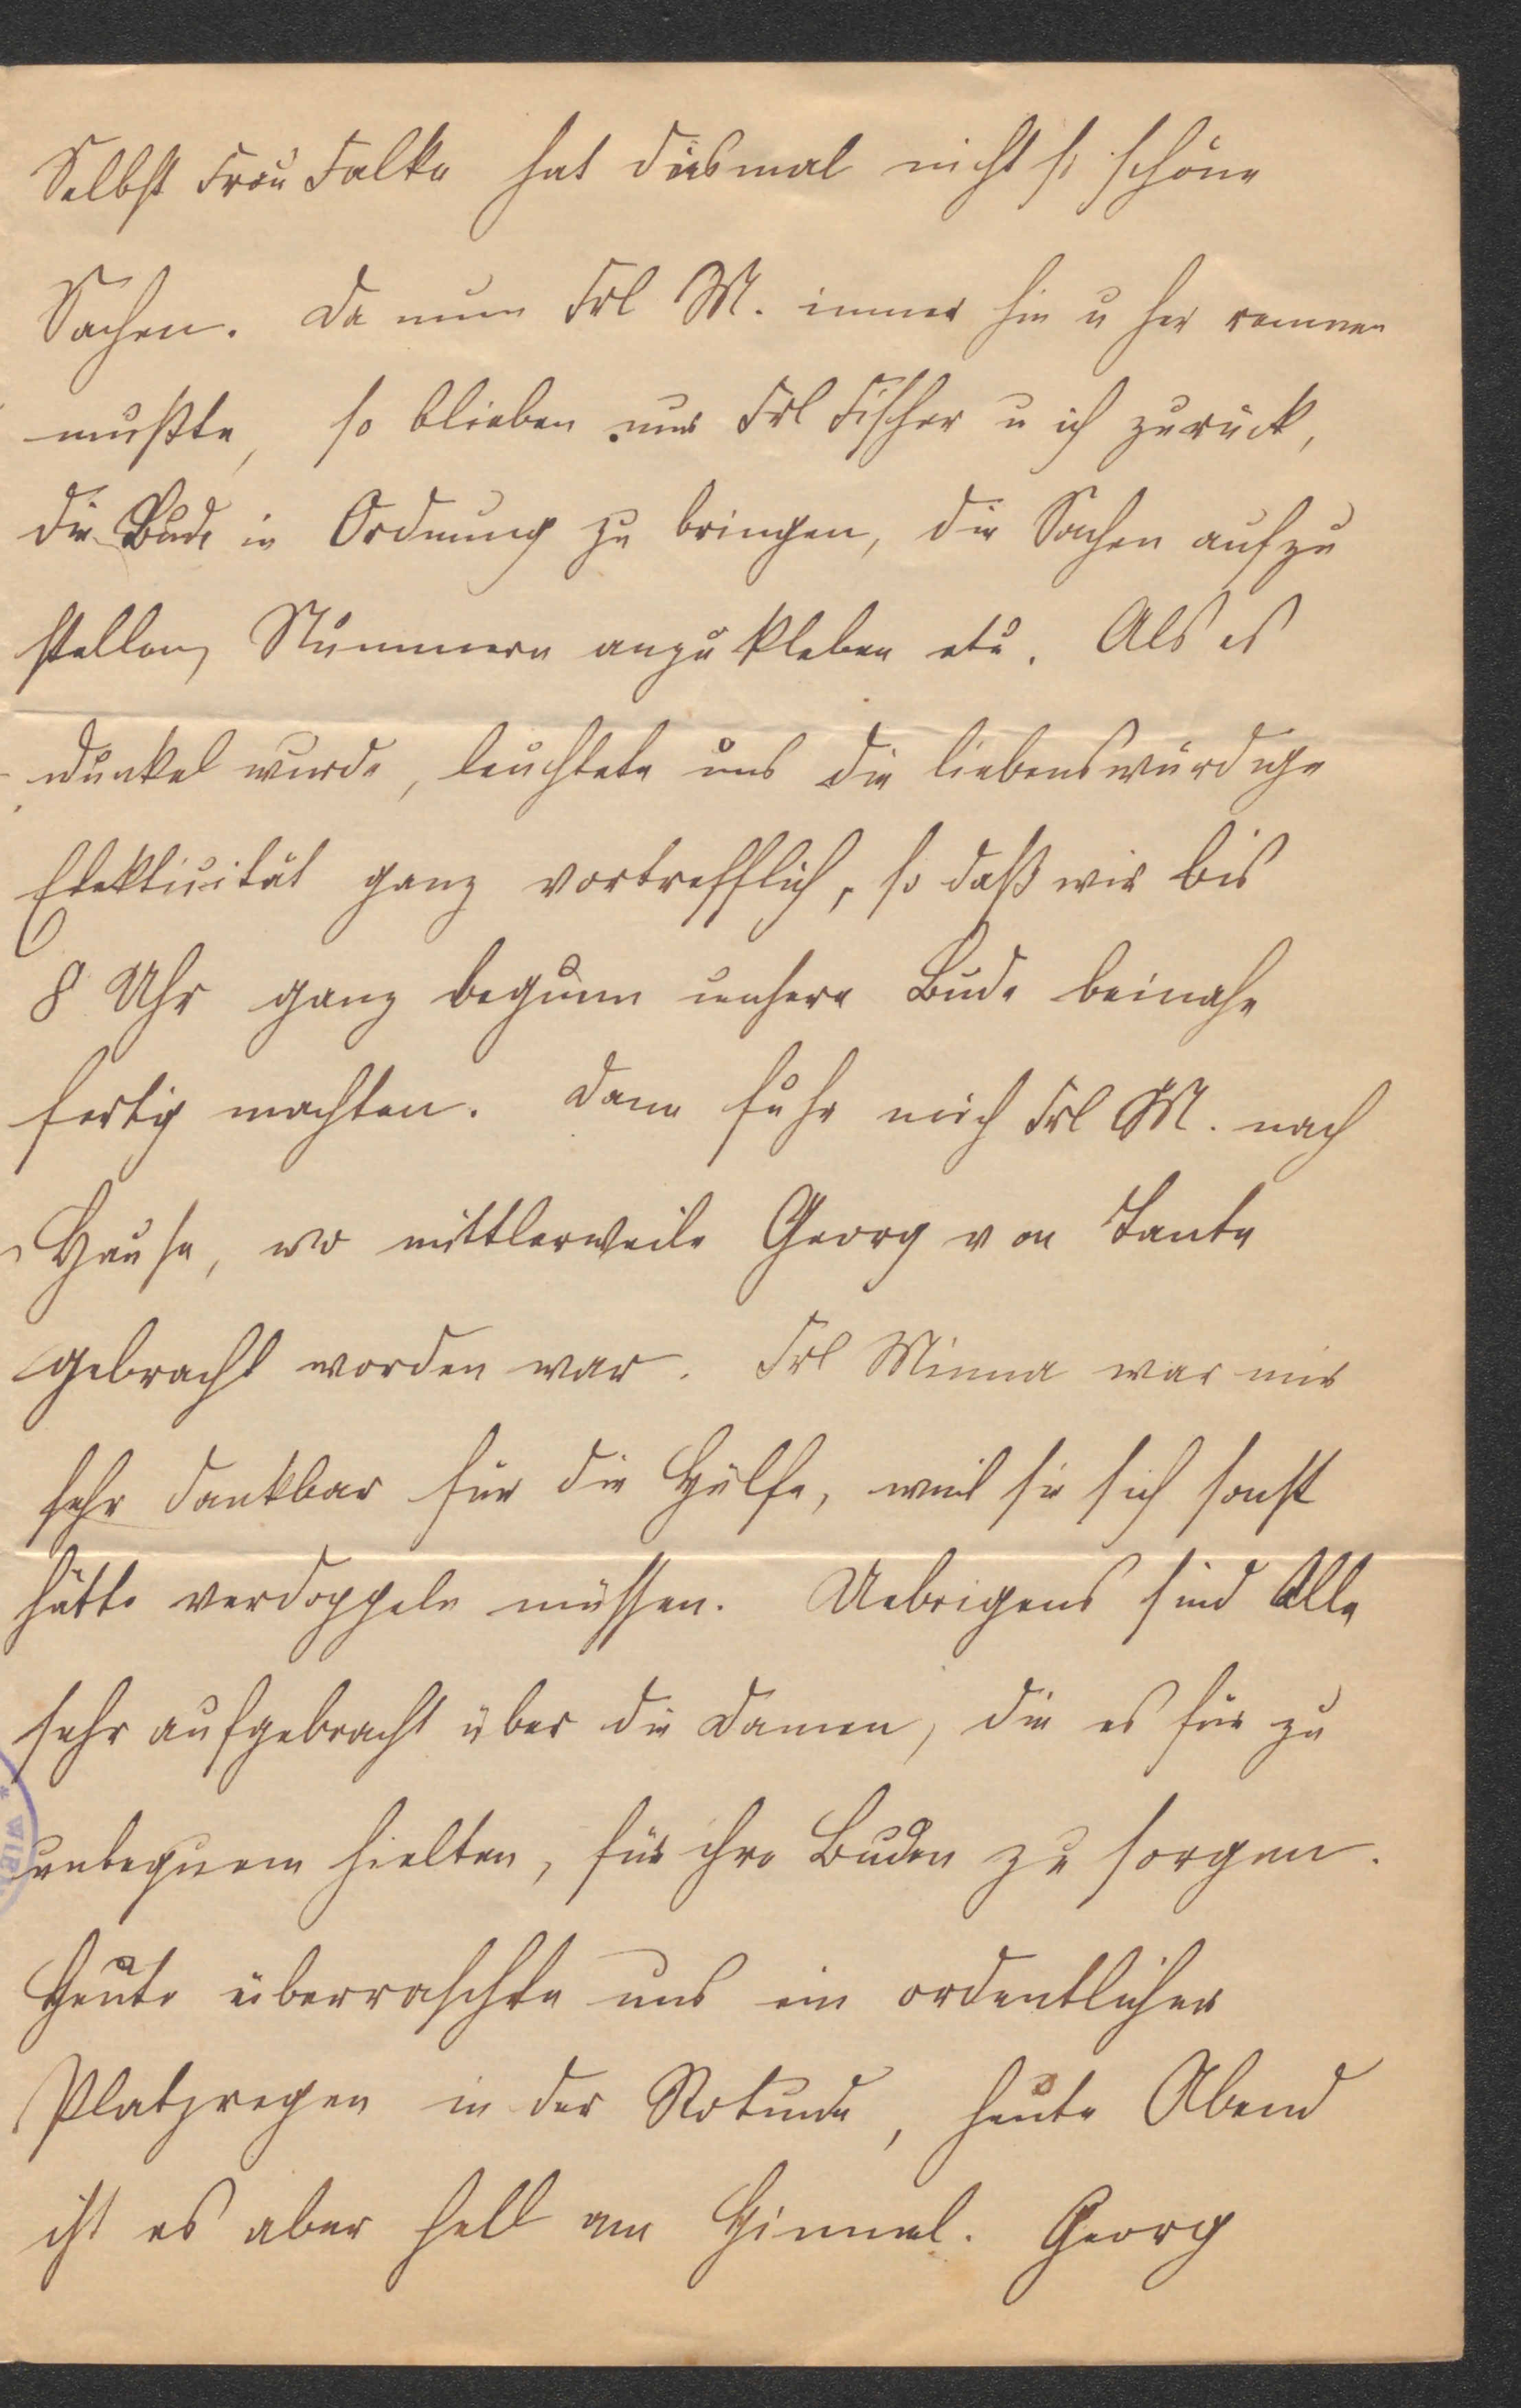 Selbst Frau Falke hat diesmal nicht so schöne
Sachen. Da nun Frl M. immer hin u her rennen
mußte, so blieben nur Frl Fischer u ich zurück,
die Bude in Ordnung zu bringen, die Sachen aufzu
stellen, Nummern anzukleben etc. Als es
dunkel wurde, leuchtete uns die liebenswürdige
Elektricität ganz vortrefflich, so daß wir bis
8 Uhr ganz bequem unsere Bude beinahe
fertig machten. Dann fuhr mich Frl M. nach
Hause, wo mittlerweile Georg von Tante
gebracht worden war. Frl Minna war mir
sehr dankbar für die Hülfe, weil sie sich sonst
hätte verdoppeln müssen. Uebrigens sind Alle
sehr aufgebracht über die Damen, die es für zu
unbequem hielten, für ihre Buden zu sorgen.
Heute überraschte uns ein ordentlicher
Platzregen in der Rotunde, heute Abend
ist es aber hell am Himmel. Georg